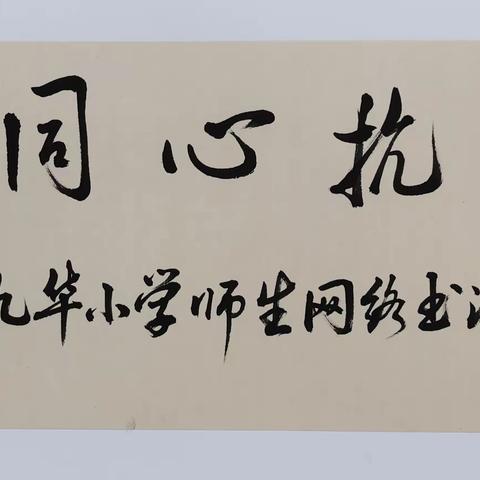 同心抗
九华小学师生网络书